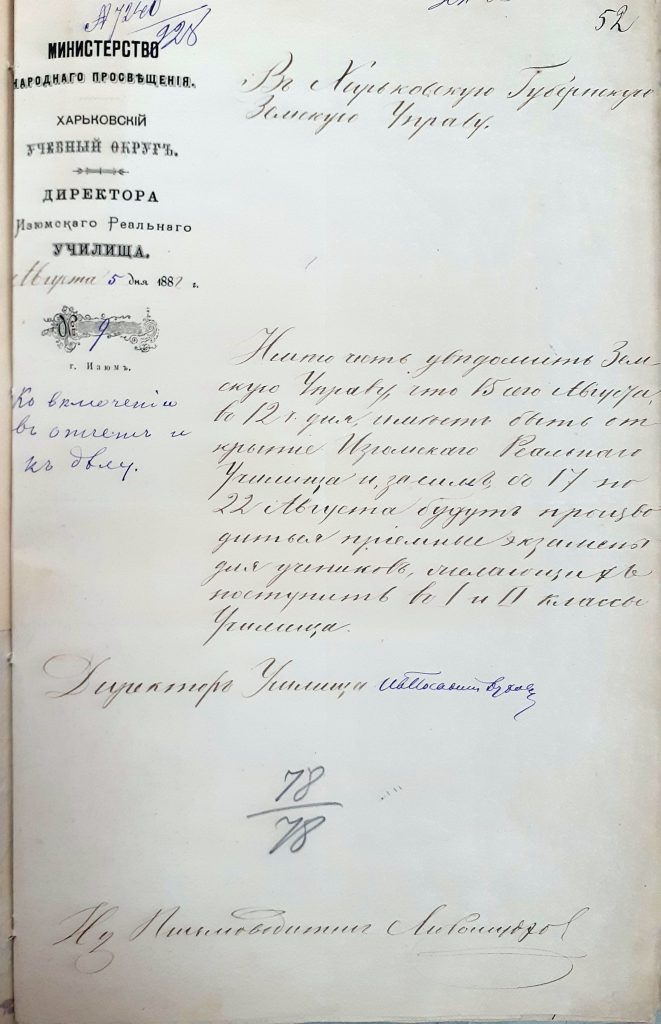 № 7240
928
52
МИНИСТЕРСТВО
НАРОДНАГО ПРОСВѢЩЕНІЯ.
ХАРЬКОВСКІЙ
УЧЕБНЫЙ ОКРУГЪ.
ДИРЕКТОРА
Изюмскаго Реальнаго
УЧИЛИЩА.
Августа 5 дня 1882 г.
№ 9
г. Изюмъ.
Ко включенію
въ отчетъ и
къ дѣлу.
Въ Харьковскую Губернскую
Земскую Управу.
Имѣю честь увѣдомить Зем-
скую Управу, что 15 сего Августа,
въ 12 ч. дня, имѣетъ быть от-
крытіе Изюмскаго Реальнаго
Училища и, засимъ, съ 17 по
22 Августа будутъ произво
диться пріемные экзамены
для учениковъ, желающихъ
поступить въ I и II классы
Училища.
Директоръ Училища
78
78
Письмоводитель